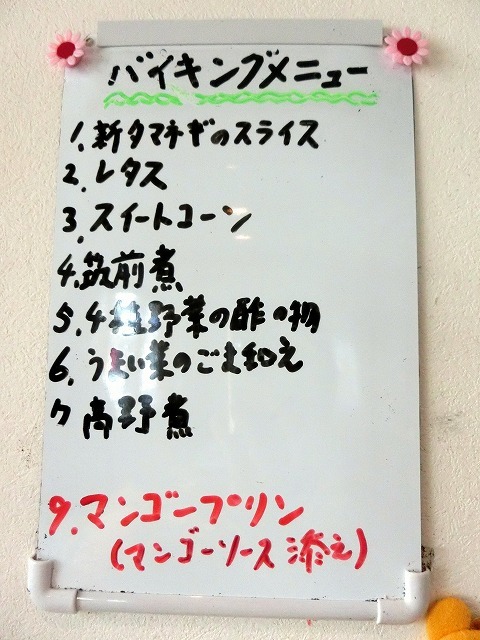 バイキングメニュー
1. 新タマネギのスライス
2. レタス
3. スイートコーン
4. 筑前煮
5. 4種野菜の酢の物
6. うまい菜のごま和え
7 高野煮
9. マンゴープリン
(マンゴーソース添え)